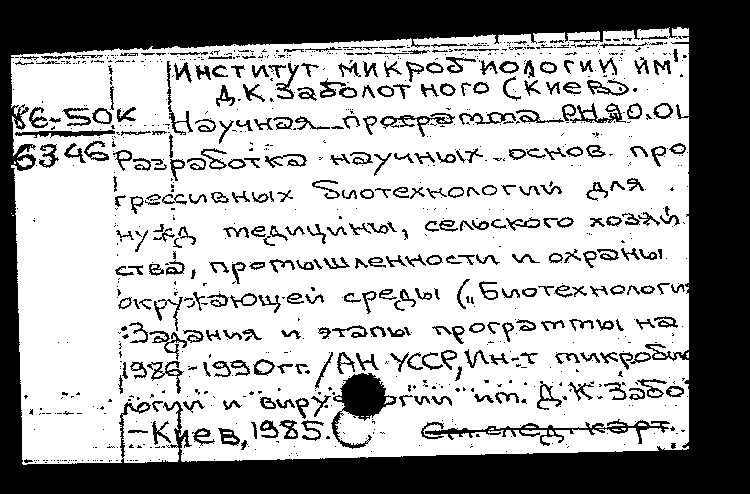 Институт микробиологии им.
Д.К.Заболотного (Киев).
86-50К
Научная программа РН.90.01
6346
Разработка научных основ про
грессивных биотехнологий для
нужд медицины, сельского хозяй
ства, промышленности и охраны
окружающей среды („Биотехнология
Задания и этапы программы на
1986-1990гг. /АН УССР, Ин-т микробио
логии и вирусологии им. Д.К.Забо
-Киев, 1985.
См. след. карт.